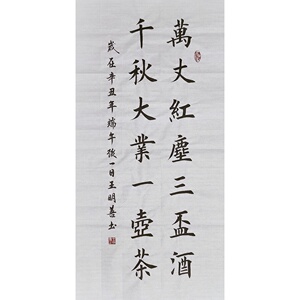 萬丈紅塵三盃酒
千秋大業一壺茶
歲在辛丑年端午後一日王明善书